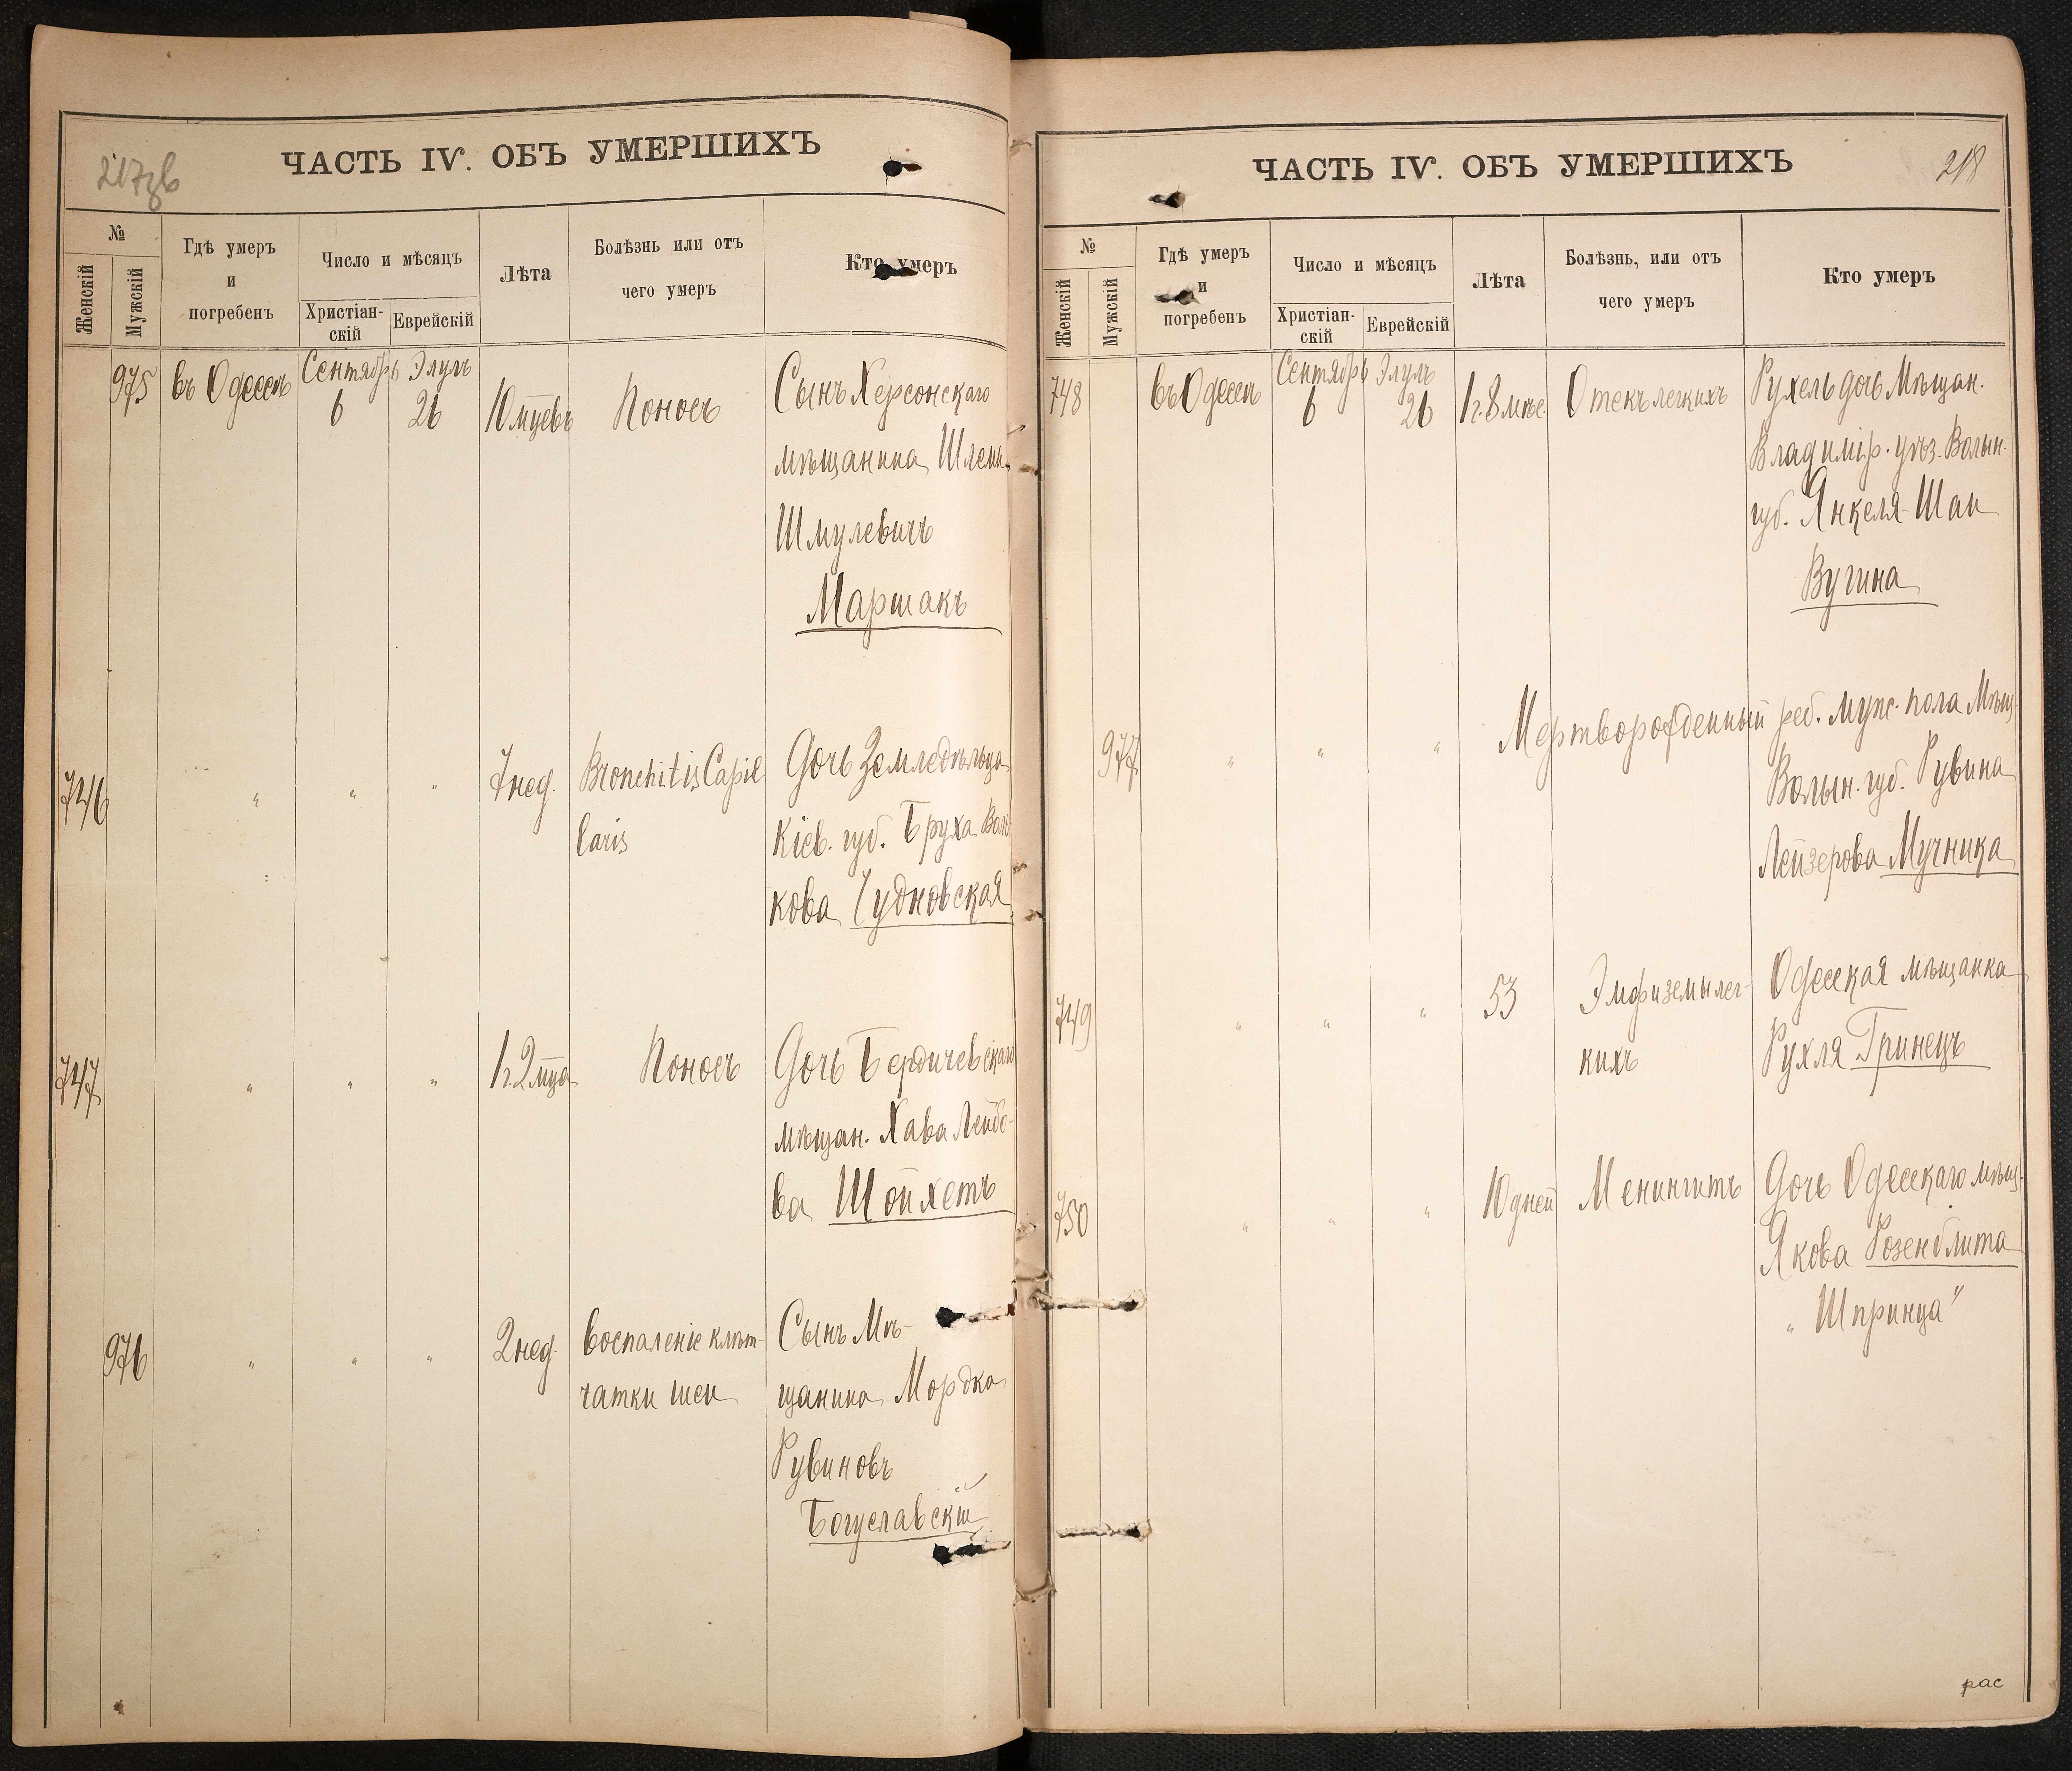 217зв
ЧАСТЬ IV. ОБЪ УМЕРШИХЪ
№
Женскій
Мужскій
Гдѣ умеръ
и
погребенъ
Число и мѣсяцъ
Христіан-
скій
Еврейскій
Лѣта
Болѣзнь или отъ
чего умеръ
Кто умеръ
975 въ Одессѣ Сентябрь 6 Элулъ 26 10 мцевъ Поносъ Сынъ Херсонскаго
мѣщанина Шлема
Шмулевичъ
Маршакъ
746 " " " 7 нед. Bronchitis Capil Дочь Земледѣльца
laris Кіев. губ. Бруха Воль
кова Чудновская
747 " " " 1 г. 2 мца Поносъ Дочь Бердичевскаго
мѣщан. Хава Лейбо-
ва Шойхетъ
976 " " " 2 нед. Воспаленіе клѣт- Сынъ Мѣ-
чатки шеи щанина Мордко
Рувиновъ
Богуславскій
218
ЧАСТЬ IV. ОБЪ УМЕРШИХЪ
№
Женскій
Мужскій
Гдѣ умеръ
и
погребенъ
Число и мѣсяцъ
Христіан-
скій
Еврейскій
Лѣта
Болѣзнь, или отъ
чего умеръ
Кто умеръ
748 въ Одессѣ Сентябрь 6 Элулъ 26 1 г. 8 мѣс. Отекъ легкихъ Рухель дочь Мѣщан.
Владимір. уѣз. Волын.
губ. Янкеля-Шаи
Вугина
977 " " " Мертворожденный реб. муж. пола Мѣщ.
Волын. губ. Рувина
Лейзерова Мучника
749 " " " 53 Эмфиземы лег- Одесская мѣщанка
кихъ Рухля Гринецъ
750 " " " 10 дней Менингитъ Дочь Одесскаго мѣщ.
Якова Розенблита
"Шпринца"
рас